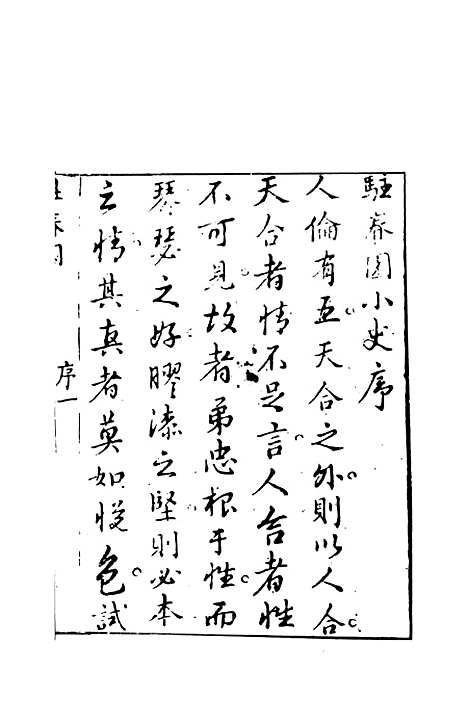 駐春園小史序
人倫有五天合之外則以人合
天合者情不足言人合者性
不可見故者弟忠根于性而
琴瑟之好膠漆之堅則必本
之情其真者莫如悅色試
序一